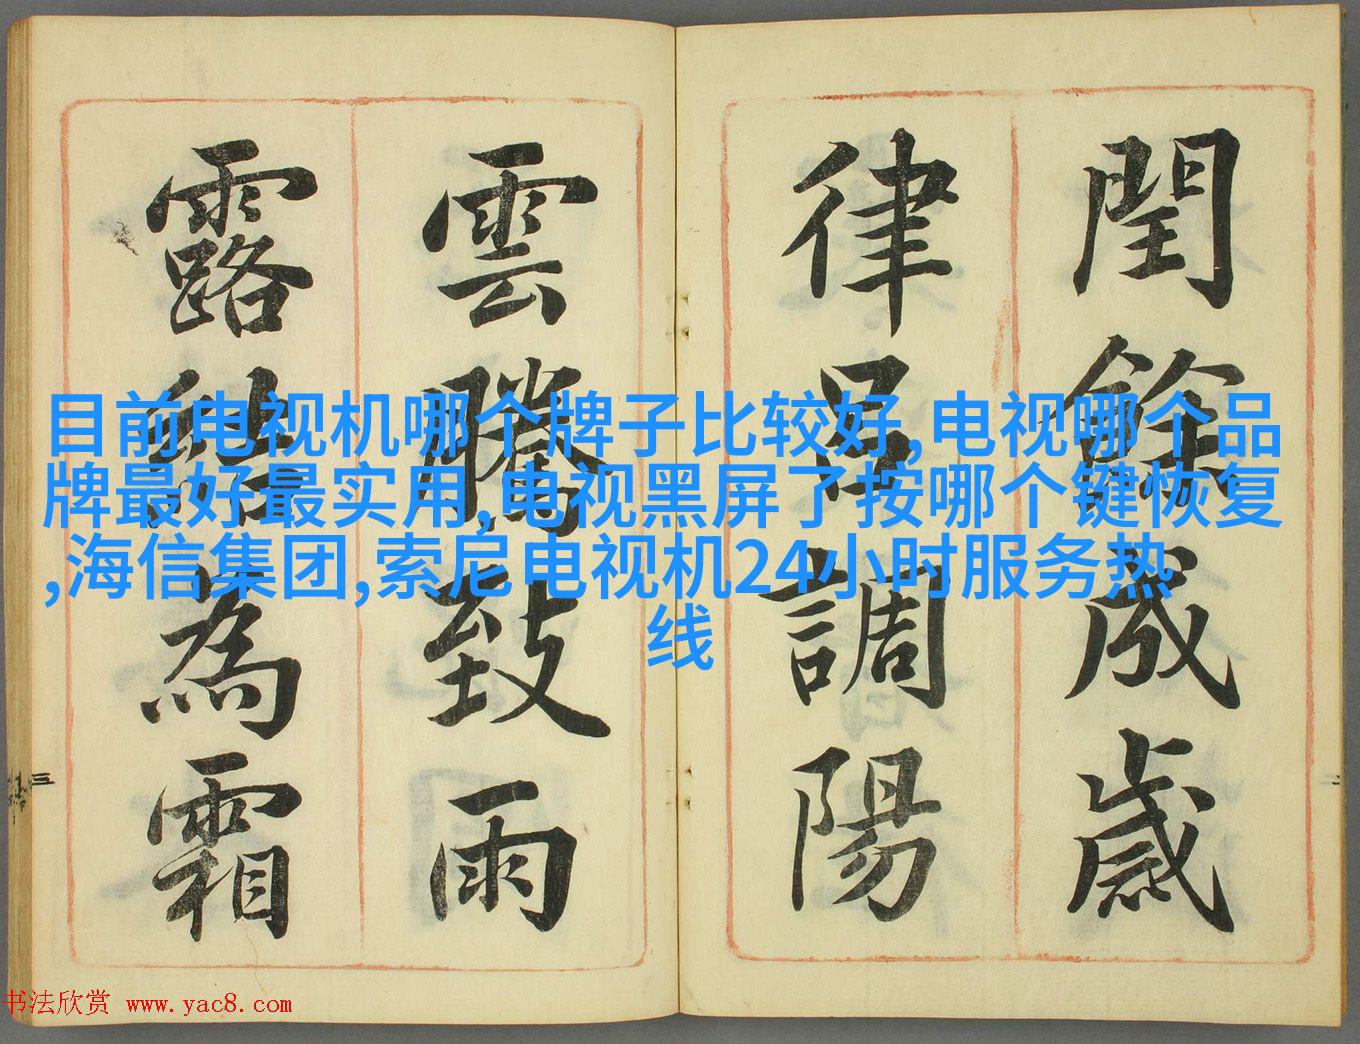 閏餘成歲
律呂調陽
雲騰致雨
露結為霜
目前电视机哪个牌子比较好,电视哪个品
牌最好最实用,电视黑屏了按哪个键恢复
,海信集团,索尼电视机24小时服务热
线
三
二
书法欣赏 www.yac8.com